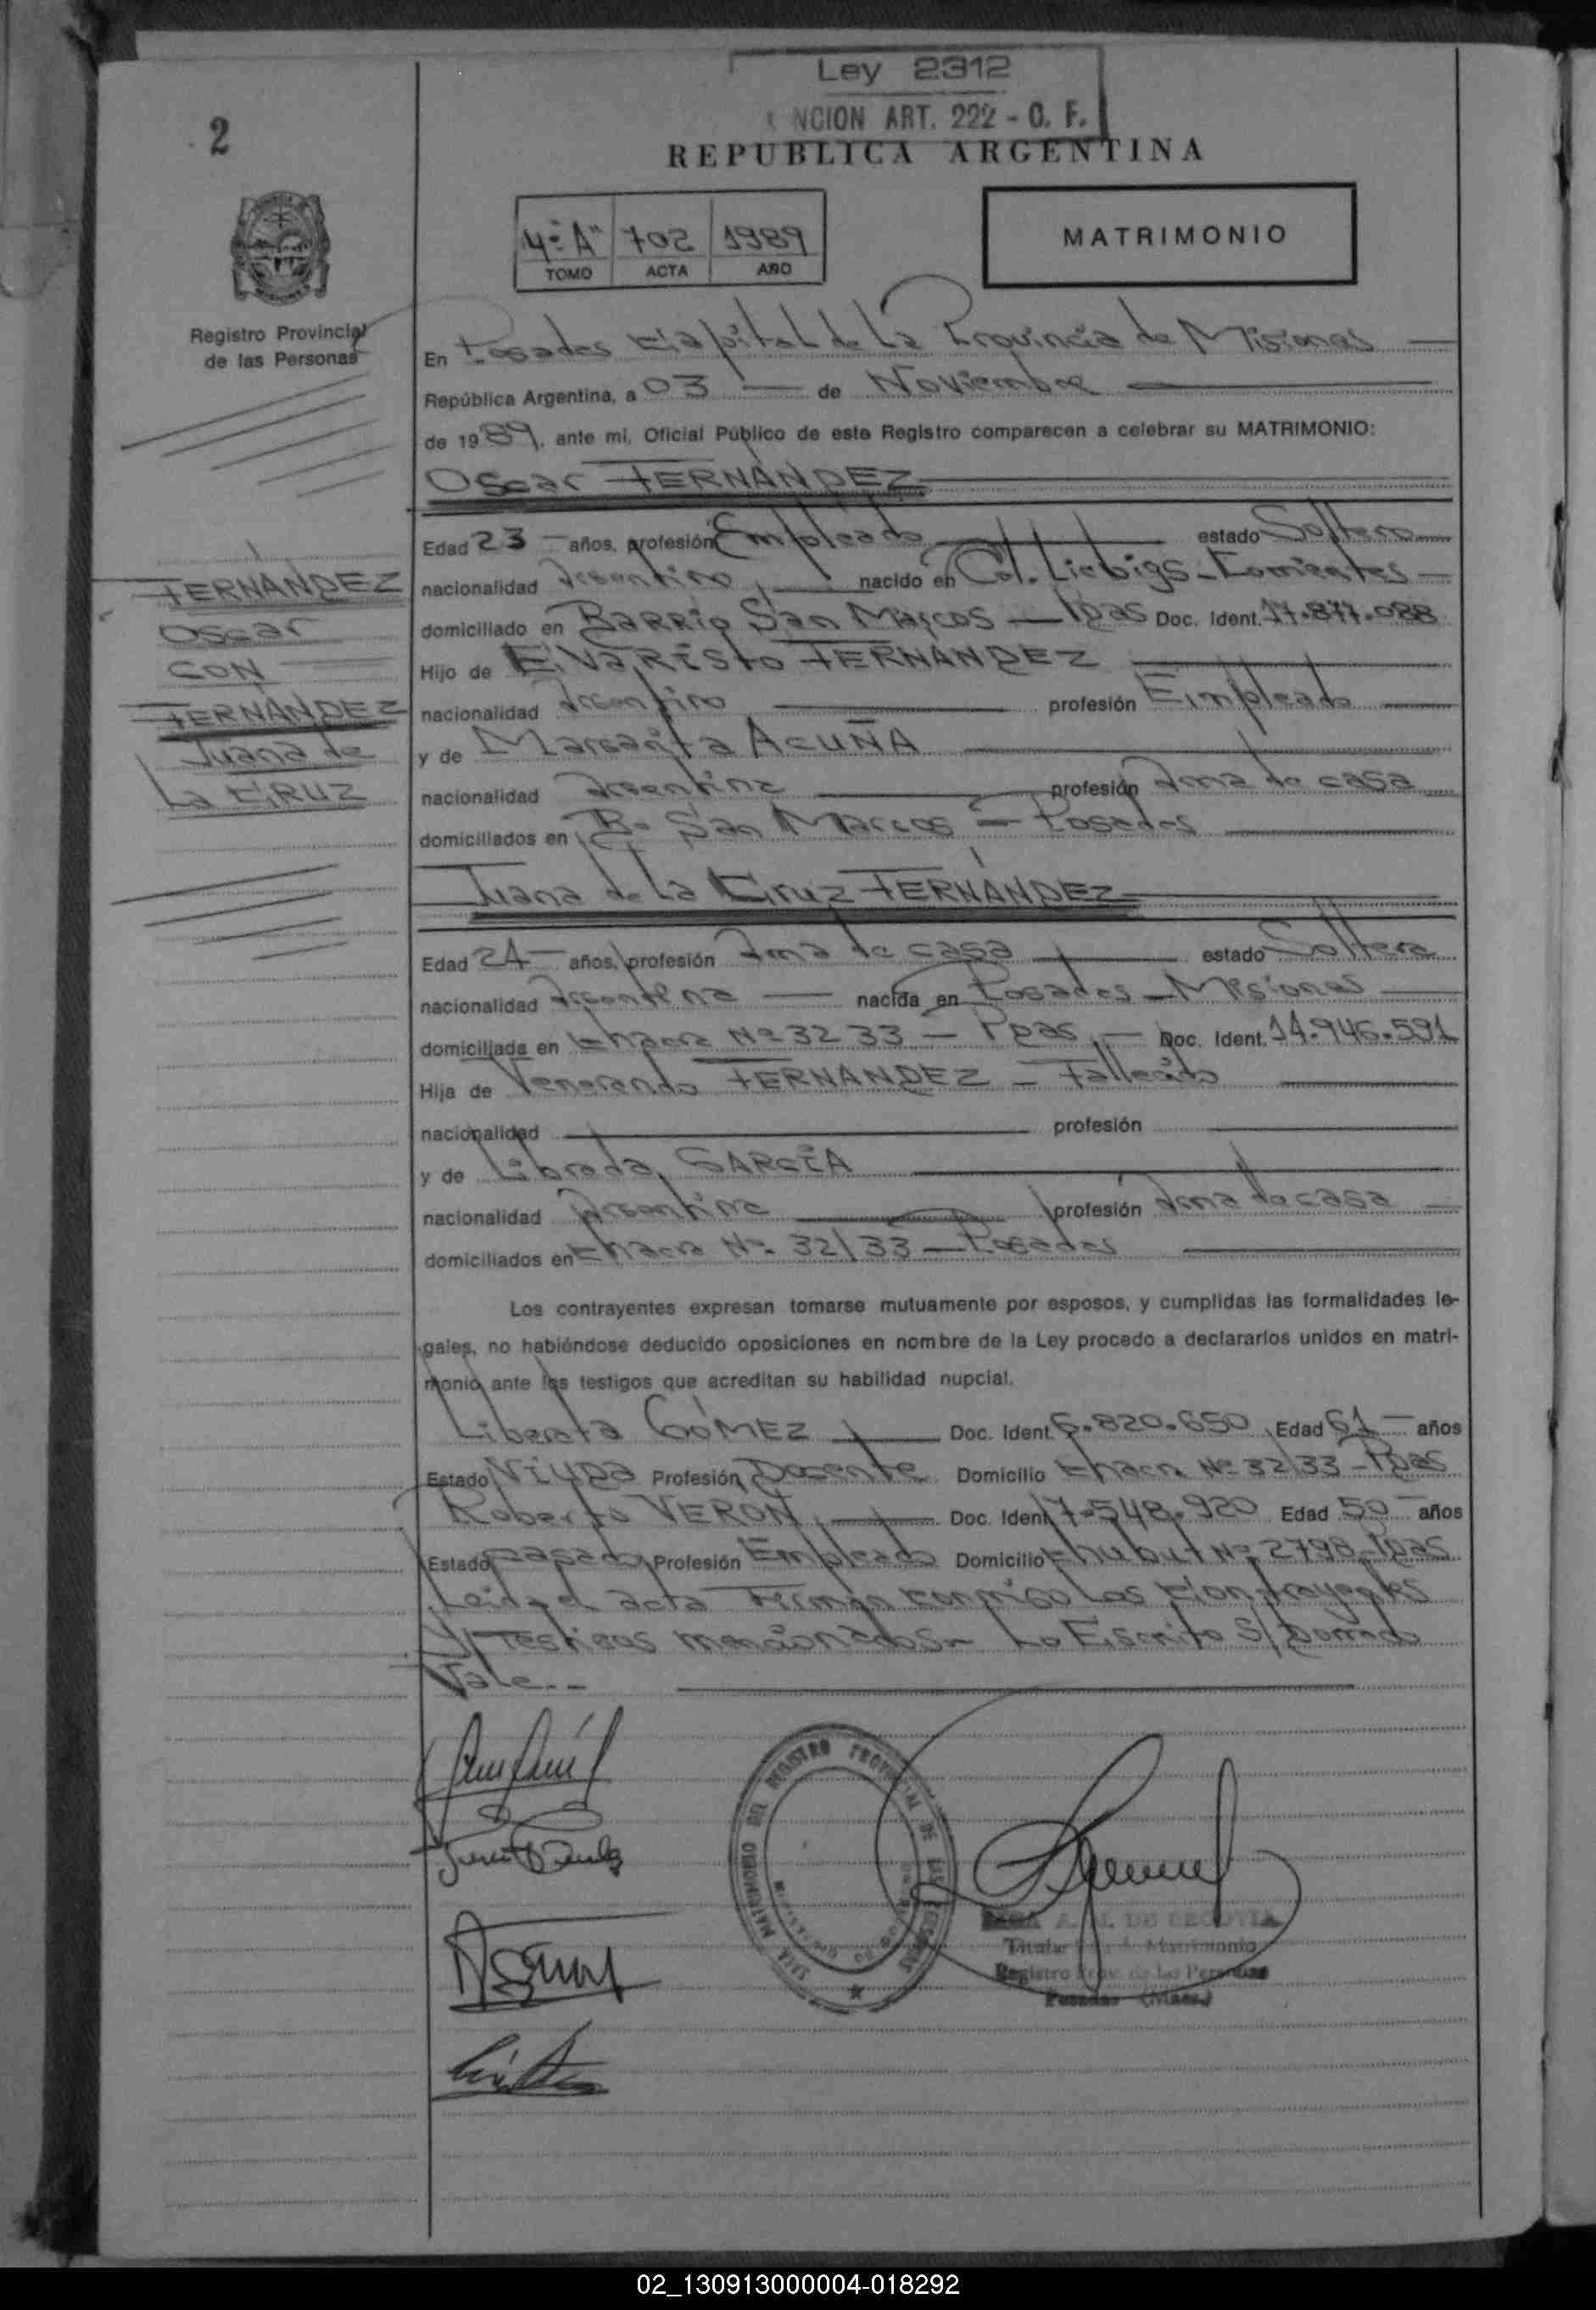 Ley 2312
NCION ART. 222 - C. F.
2
REPUBLICA ARGENTINA
4º "A" 702 1989
TOMO ACTA AÑO
MATRIMONIO
Registro Provincial
de las Personas
En Posadas Capital de La Provincia de Misiones
República Argentina, a 03 de Noviembre
de 1989, ante mi, Oficial Público de este Registro comparecen a celebrar su MATRIMONIO:
Oscar FERNÁNDEZ
Edad 23 años, profesión Empleado estado Soltero
nacionalidad Argentino, nacido en Col. Liebigs - Corrientes
domiciliado en Barrio San Marcos - Pdas Doc. Ident. 17.877.088
Hijo de Evaristo FERNANDEZ
nacionalidad Argentino profesión Empleado
y de Margarita ACUÑA
nacionalidad Argentina profesión Ama de casa
domiciliados en Bº San Marcos - Posadas
FERNÁNDEZ
Oscar
CON
FERNÁNDEZ
Juana de
La CRUZ
Juana de La Cruz FERNÁNDEZ
Edad 24 años, profesión Ama de casa estado Soltera
nacionalidad Argentina nacida en Posadas - Misiones
domiciliada en Chacra Nº 32 33 - Pdas Doc. Ident. 14.946.591
Hija de Venerando FERNANDEZ - Fallecido
nacionalidad profesión
y de Librada GARCÍA
nacionalidad Argentina profesión Ama de casa
domiciliados en Chacra Nº 32/33 - Posadas
Los contrayentes expresan tomarse mutuamente por esposos, y cumplidas las formalidades le-
gales, no habiéndose deducido oposiciones en nombre de la Ley procedo a declararlos unidos en matri-
monio ante los testigos que acreditan su habilidad nupcial.
Liberata GÓMEZ Doc. Ident. 6.820.650 Edad 61 años
Estado Viuda Profesión Docente Domicilio Chacra Nº 32/33 - Pdas
Roberto VERON Doc. Ident 7.548.920 Edad 50 años
Estado casado Profesión Empleado Domicilio Chubut Nº 2798 - Pdas
Leida el acta Firman conmigo Los Contrayentes
y Testigos mencionados.- Lo Escrito S/ borrado
Vale.-
REGISTRO PROVINCIAL DE LAS PERSONAS
A. M. DE SEGOVIA
Titular Matrimonio
Registro Prov. de Las Personas
Posadas (Mnes.)
02_130913000004-018292